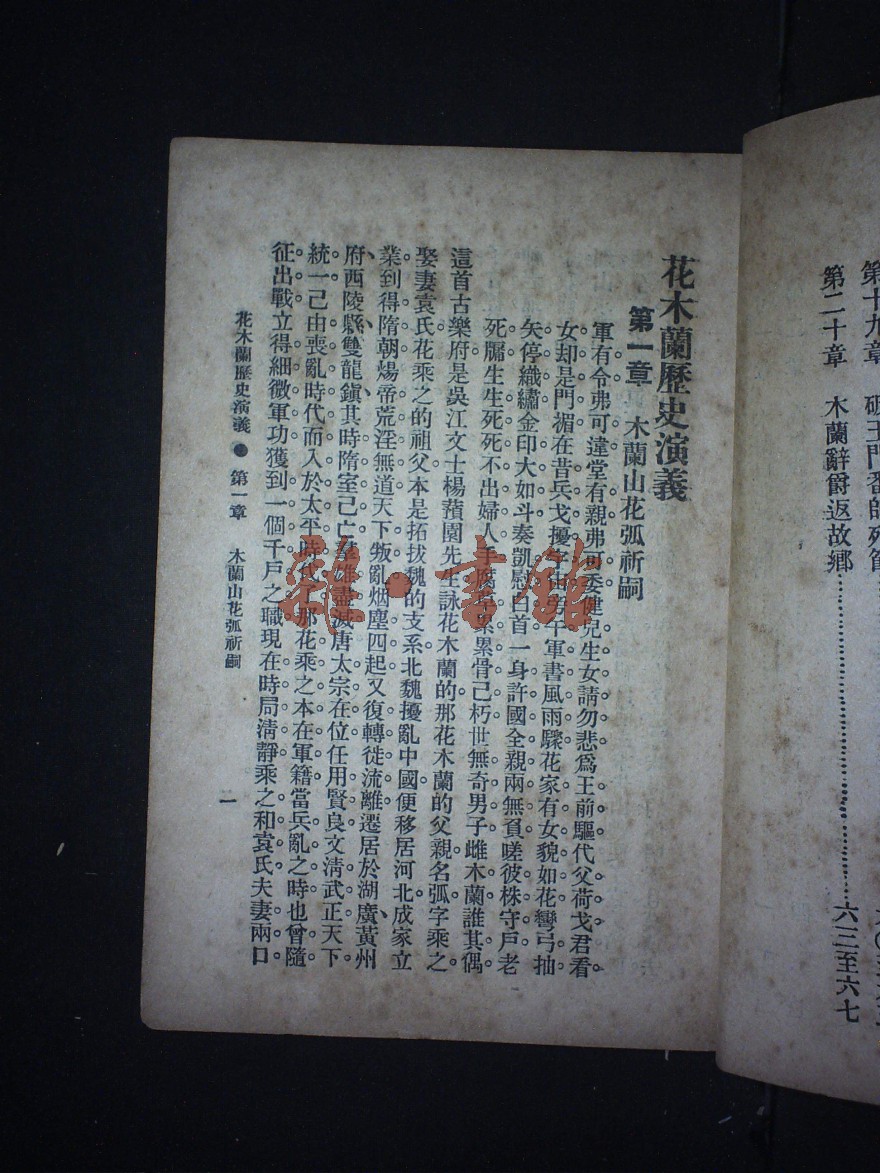 第十九章
第二十章　木蘭辭爵返故鄉……六三至六七
花木蘭歷史演義
第一章　木蘭山花弧祈嗣
軍有令弗可違堂有親弗可委健兒生女請勿悲爲王前驅代父荷戈君看
女却是門楣在昔兵戈擾軍書風雨驟花家有女貌如花彎弓抽
矢停織繡金印大如斗奏凱慰白首一身許國全親兩無負嗟彼株守戶老
死牖生生死死不出婦人手累累骨已朽世無奇男子雌木蘭誰其偶
這首古樂府是吳江文士楊蘋園先生詠花木蘭的那花木蘭的父親名弧字乘之
娶妻袁氏花乘之的祖父本是拓拔魏的支系北魏擾亂中國便移居河北成家立
業到得隋朝煬帝荒淫無道天下叛亂烟塵四起又復轉徙流離遷居於湖廣黃州
府西陵縣雙龍鎭其時隋室已亡羣雄盡滅唐太宗在位任用賢良文淸武正天下
統一已由喪亂時代而入於太平時代了那花乘之本在軍籍當兵亂之時也曾隨
征出戰立得細微軍功獲到一個千戶之職現在時局淸靜乘之和袁氏夫妻兩口
花木蘭歷史演義●第一章　木蘭山花弧祈嗣
一
雜·書館